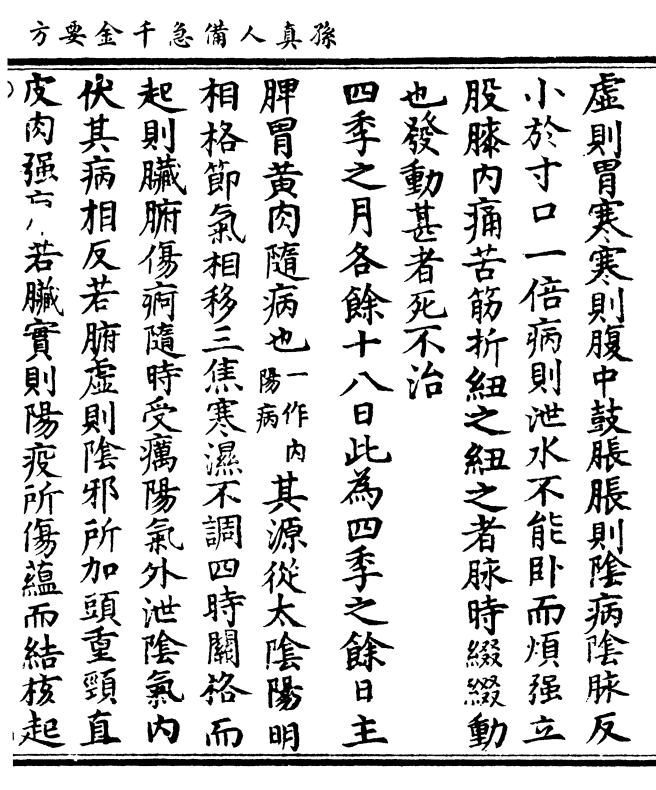 孫真人備急千金要方
虛則胃寒寒則腹中鼓脹脹則陰病陰脉反
小於寸口一倍病則泄水不能卧而煩强立
股膝内痛苦筋折紐之紐之者脉時綴綴動
也發動甚者死不治
四季之月各餘十八日此為四季之餘日主
脾胃黄肉隨病也一作内陽病其源從太陰陽明
相格節氣相移三焦寒濕不調四時關格而
起則臟腑傷痾隨時受癘陽氣外泄陰氣内
伏其病相反若腑虛則陰邪所加頭重頸直
皮肉强若臟實則陽疫所傷蘊而結核起